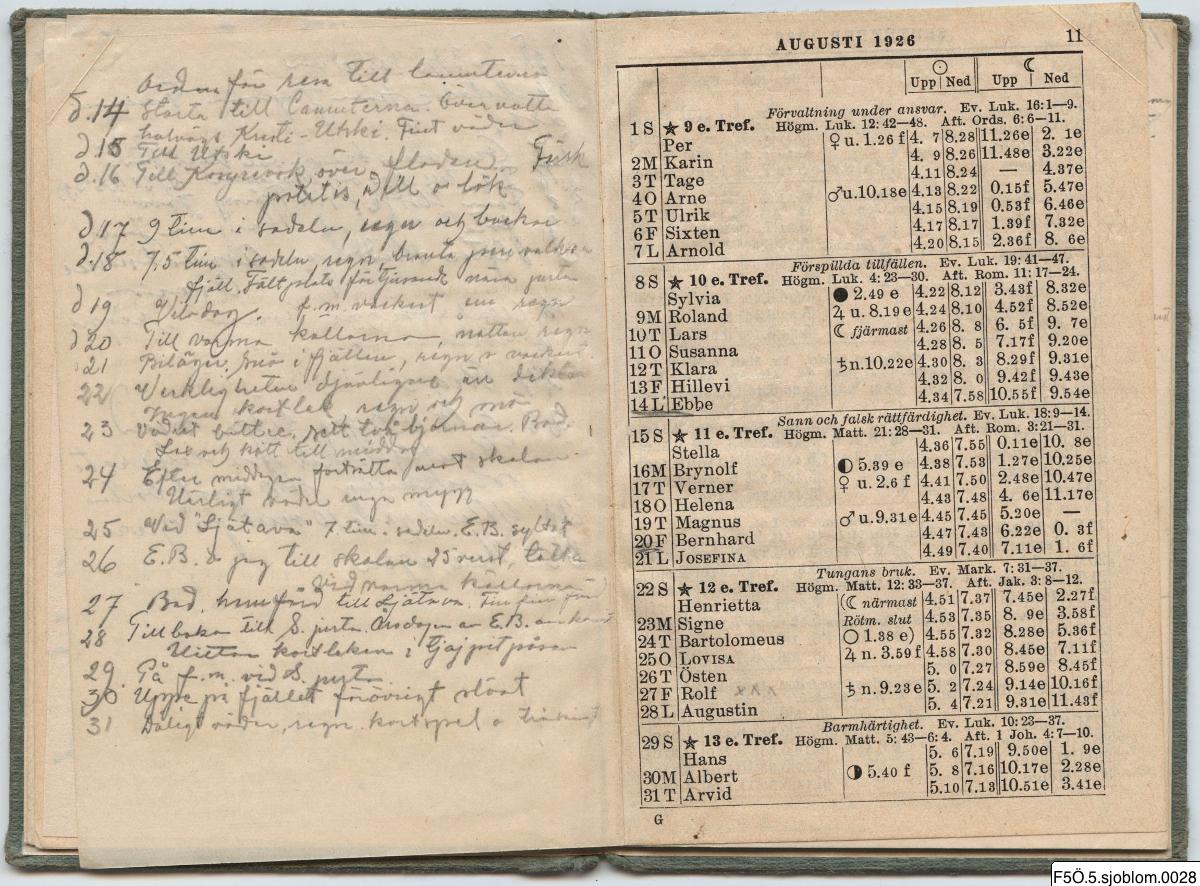 Orden för resa till
d.14 Starta till
d.15 Till Utski
d.16 Till över floden
potatis, dill o lök
d.17 9 tim i sadeln, regn och backar
d.18 7,5 tim i sadeln regn branta
fjäll. Fältplats förtjusande nära
d 19 Vilodag. f.m vackert em regn
d 20 Till varma källorna, natten regn
21 snö i fjällen, regn o
22 Verkligheten djävligare än dikten
Ingen kortlek regn och snö
23 Vädret bättre, sett två björnar. Bad.
Lax och kött till middag
24 Efter middagen
Härligt väder inga mygg
25 Vid "Ljätava" 7 tim i sadeln. E.B.
26 E.B. o jag till skolan 25 verst
Vid varma källorna
27 Bad, till Ljätava.
28 Tillbaka till S. jurta. E.B.
kortleken i
29 På f.m. vid S. jurta
30 Uppe på fjället förövrigt
31 Dåligt väder, regn. kortspel o
AUGUSTI 1926 11
Upp Ned Upp ☾ Ned
Förvaltning under ansvar. Ev. Luk. 16:1—9.
1 S ★ 9 e. Tref. Högm. Luk. 12:42—48. Aft. Ords. 6:6—11.
Per ♀ u. 1.26 f 4. 7 8.28 11.26e 2. 1e
2 M Karin 4. 9 8.26 11.48e 3.22e
3 T Tage 4.11 8.24 — 4.37e
4 O Arne ♂ u.10.18e 4.13 8.22 0.15f 5.47e
5 T Ulrik 4.15 8.19 0.53f 6.46e
6 F Sixten 4.17 8.17 1.39f 7.32e
7 L Arnold 4.20 8.15 2.36f 8. 6e
Förspillda tillfällen. Ev. Luk. 19:41—47.
8 S ★ 10 e. Tref. Högm. Luk. 4:23—30. Aft. Rom. 11:17—24.
Sylvia ● 2.49 e 4.22 8.12 3.43f 8.32e
9 M Roland ♃ u. 8.19 e 4.24 8.10 4.52f 8.52e
10 T Lars ☾ fjärmast 4.26 8. 8 6. 5f 9. 7e
11 O Susanna 4.28 8. 5 7.17f 9.20e
12 T Klara ♄ n.10.22 e 4.30 8. 3 8.29f 9.31e
13 F Hillevi 4.32 8. 0 9.42f 9.43e
14 L Ebbe 4.34 7.58 10.55f 9.54e
Sann och falsk rättfärdighet. Ev. Luk. 18:9—14.
15 S ★ 11 e. Tref. Högm. Matt. 21:28—31. Aft. Rom. 3:21—31.
Stella 4.36 7.55 0.11e 10. 8e
16 M Brynolf ◐ 5.39 e 4.38 7.53 1.27e 10.25e
17 T Verner ♀ u. 2.6 f 4.41 7.50 2.48e 10.47e
18 O Helena 4.43 7.48 4. 6e 11.17e
19 T Magnus ♂ u.9.31e 4.45 7.45 5.20e —
20 F Bernhard 4.47 7.43 6.22e 0. 3f
21 L JOSEFINA 4.49 7.40 7.11e 1. 6f
Tungans bruk. Ev. Mark. 7:31—37.
22 S ★ 12 e. Tref. Högm. Matt. 12:33—37. Aft. Jak. 3:8—12.
Henrietta (☾ närmast 4.51 7.37 7.45e 2.27f
23 M Signe Rötm. slut 4.53 7.35 8. 9e 3.58f
24 T Bartolomeus ○ 1.38 e) 4.55 7.32 8.28e 5.36f
25 O LOVISA ♃ n. 3.59 f 4.58 7.30 8.45e 7.11f
26 T Östen 5. 0 7.27 8.59e 8.45f
27 F Rolf xxx ♄ n. 9.23 e 5. 2 7.24 9.14e 10.16f
28 L Augustin 5. 4 7.21 9.31e 11.43f
Barmhärtighet. Ev. Luk. 10:23—37.
29 S ★ 13 e. Tref. Högm. Matt. 5:43—6:4. Aft. 1 Joh. 4:7—10.
Hans 5. 6 7.19 9.50e 1. 9e
30 M Albert ◑ 5.40 f 5. 8 7.16 10.17e 2.28e
31 T Arvid 5.10 7.13 10.51e 3.41e
G
F5Ö.5.sjoblom.0028